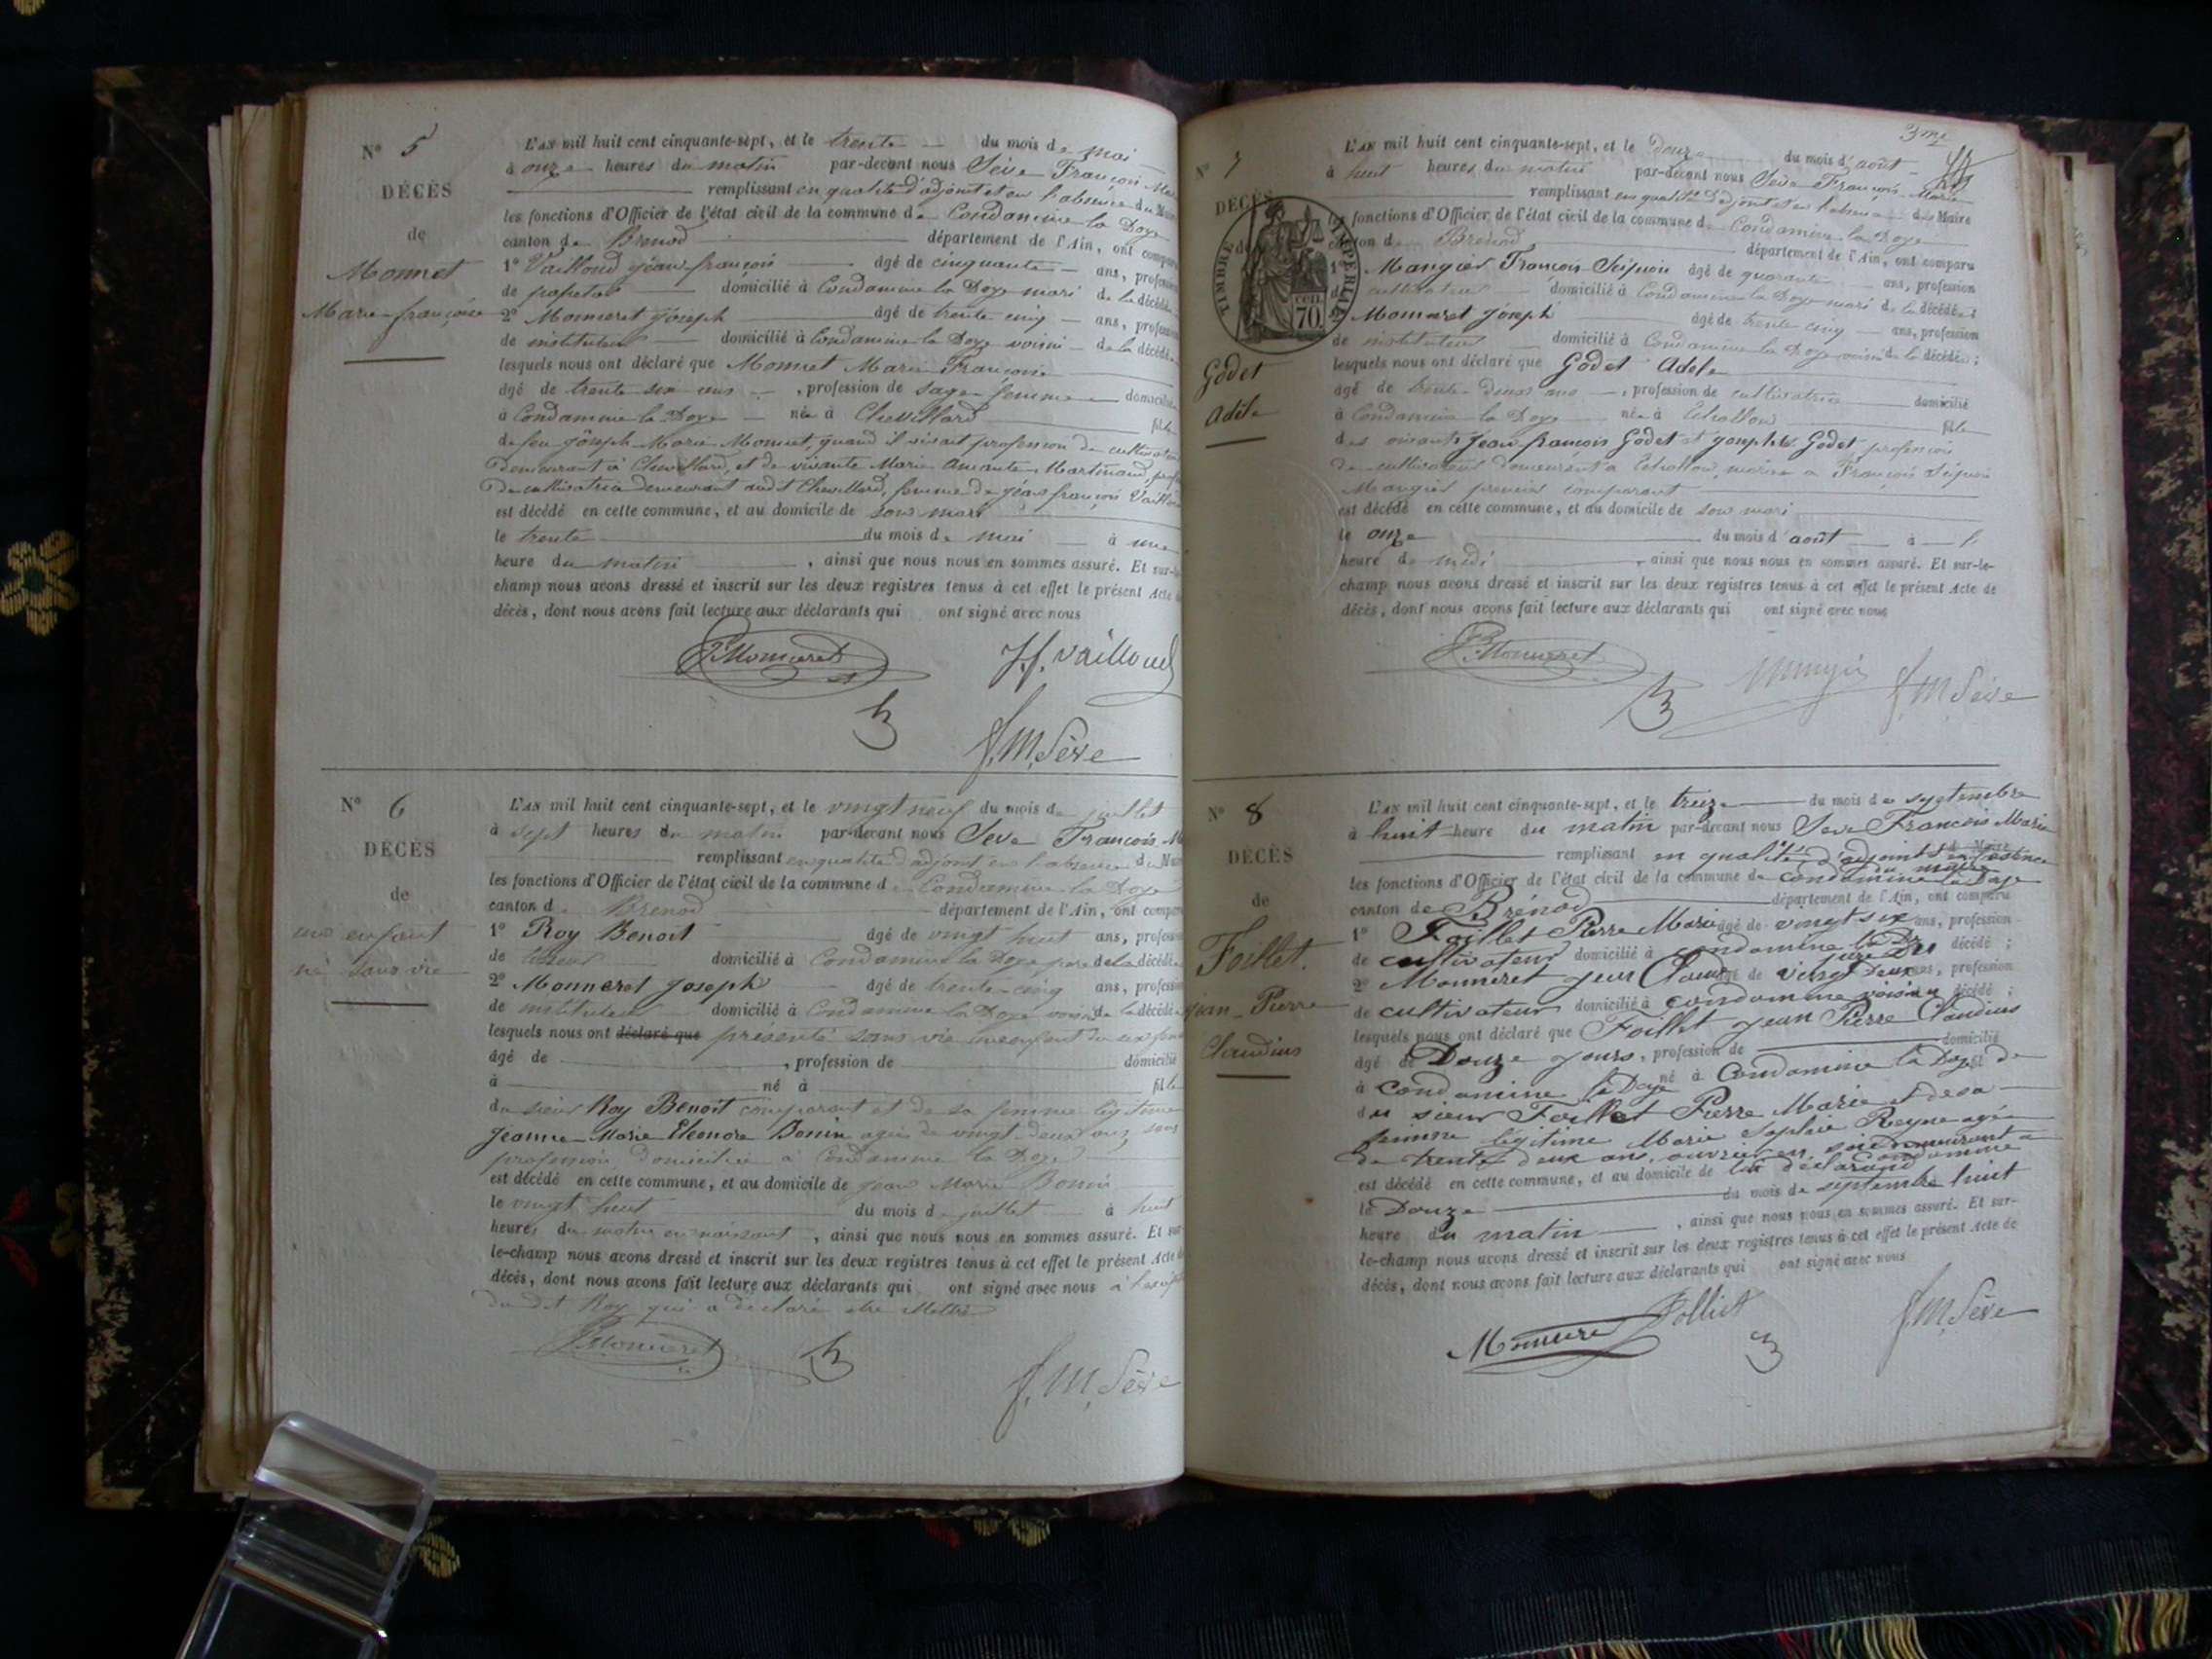 N° 5
DÉCÈS
de
Monnet
Marie françoise
L'AN mil huit cent cinquante-sept, et le trente du mois de mai
à onze heures du matin par-devant nous Sève François Mar
remplissant en qualité d'adjoint et en l'absence du Maire
les fonctions d'Officier de l'état civil de la commune de Condamine la Doye
canton de Brenod département de l'Ain, ont comparu
1° Vailloud jean-françois âgé de cinquante ans, profession
de domicilié à Condamine la Doye mari de la décédée
2° Monneret joseph âgé de trente cinq ans, profession
de instituteur domicilié à Condamine la Doye voisin de la décédée
lesquels nous ont déclaré que Monnet Marie Françoise
âgé de trente six ans, profession de sage-femme domicilié
à Condamine la Doye née à Chevillard fille
de feu joseph Marie Monnet, quand il vivait profession de cultivateur
Demeurant à Chevillard, et de vivante Marie Martinand, prof
De cultivatrice demeurant audit Chevillard, femme de jean françois Vaillou
est décédé en cette commune, et au domicile de son mari
le trente du mois de mai à une
heure du matin, ainsi que nous nous en sommes assuré. Et sur-le-
champ nous avons dressé et inscrit sur les deux registres tenus à cet effet le présent Acte de
décès, dont nous avons fait lecture aux déclarants qui ont signé avec nous
Monneret J.f. Vailloud
f.M. Sève
N° 6
DÉCÈS
de
un enfant
né sans vie
L'AN mil huit cent cinquante-sept, et le vingt neuf du mois de juillet
à sept heures du matin par-devant nous Seve François M
remplissant en qualité d'adjoint en l'absence du Maire
les fonctions d'Officier de l'état civil de la commune de Condamine la Doye
canton de Brenod département de l'Ain, ont comparu
1° Roy Benoit âgé de vingt huit ans, profession
de domicilié à Condamine la Doye père de la décédée
2° Monneret joseph âgé de trente-cinq ans, profession
de instituteur domicilié à Condamine la Doye voisin de la décédée
lesquels nous ont déclaré que présenté sans vie un enfant du sexe fem
âgé de, profession de domicilié
à né à fille
du sieur Roy Benoit comparant et de sa femme légitime
jeanne-Marie Eleonore Bonin agée de vingt-deux ans, sans
profession, domiciliée à Condamine la Doye
est décédé en cette commune, et au domicile de jean Marie Bonin
le vingt huit du mois de juillet à huit
heures du matin en naissant, ainsi que nous nous en sommes assuré. Et sur-
le-champ nous avons dressé et inscrit sur les deux registres tenus à cet effet le présent Acte de
décès, dont nous avons fait lecture aux déclarants qui ont signé avec nous à l'excep
du dit Roy qui a déclaré être illettré
Monneret
f.M. Sève
3me
N° 7
DÉCÈS
de
TIMBRE IMPÉRIAL
70 cen.
Godet
Adèle
L'AN mil huit cent cinquante-sept, et le Douze du mois d'août
à huit heures du matin par-devant nous Sève François-Marie
remplissant en qualité d'adjoint et en l'absence du Maire
les fonctions d'Officier de l'état civil de la commune de Condamine la Doye
canton de Brénod département de l'Ain, ont comparu
1° Mangier François âgé de quarante ans, profession
de cultivateur domicilié à Condamine la Doye mari de la décédée
Monneret joseph âgé de trente cinq ans, profession
de instituteur domicilié à Condamine la Doye voisin de la décédée;
lesquels nous ont déclaré que Godet Adele
âgé de trente-deux ans, profession de cultivatrice domicilié
à Condamine la Doye née à Echallon fille
des vivants jean françois Godet et Godet, profession
de cultivateurs demeurant à Echallon, mariée à François
Mangier premier comparant
est décédé en cette commune, et au domicile de son mari
le onze du mois d'août à l'
heure de midi, ainsi que nous nous en sommes assuré. Et sur-le-
champ nous avons dressé et inscrit sur les deux registres tenus à cet effet le présent Acte de
décès, dont nous avons fait lecture aux déclarants qui ont signé avec nous
Monneret Mangier f.M. Sève
N° 8
DÉCÈS
de
Foillet.
jean-Pierre
Claudius
L'AN mil huit cent cinquante-sept, et le treize du mois de septembre
à huit heure du matin par-devant nous Seve François Marie
remplissant en qualité d'adjoint en l'absence du maire
les fonctions d'Officier de l'état civil de la commune de condamine la Doye
canton de Brénod département de l'Ain, ont comparu
1° Foillet Pierre Marie âgé de vingt six ans, profession
de cultivateur domicilié à condamine la Doye père du décédé;
2° Monneret jean Claude âgé de vingt deux ans, profession
de cultivateur domicilié à condamine voisin du décédé;
lesquels nous ont déclaré que Foillet jean Pierre Claudius
âgé de Douze jours, profession de domicilié
à condamine la Doye né à Condamine la Doye
du sieur Foillet Pierre Marie et de sa
femme légitime Marie Sophie Reyne agée
de trente deux ans, demeurant a Condamine
est décédé en cette commune, et au domicile de déclarant
le Douze du mois de septembre huit
heure du matin, ainsi que nous nous en sommes assuré. Et sur-
le-champ nous avons dressé et inscrit sur les deux registres tenus à cet effet le présent Acte de
décès, dont nous avons fait lecture aux déclarants qui ont signé avec nous
Monneret Folliet f.M. Sève